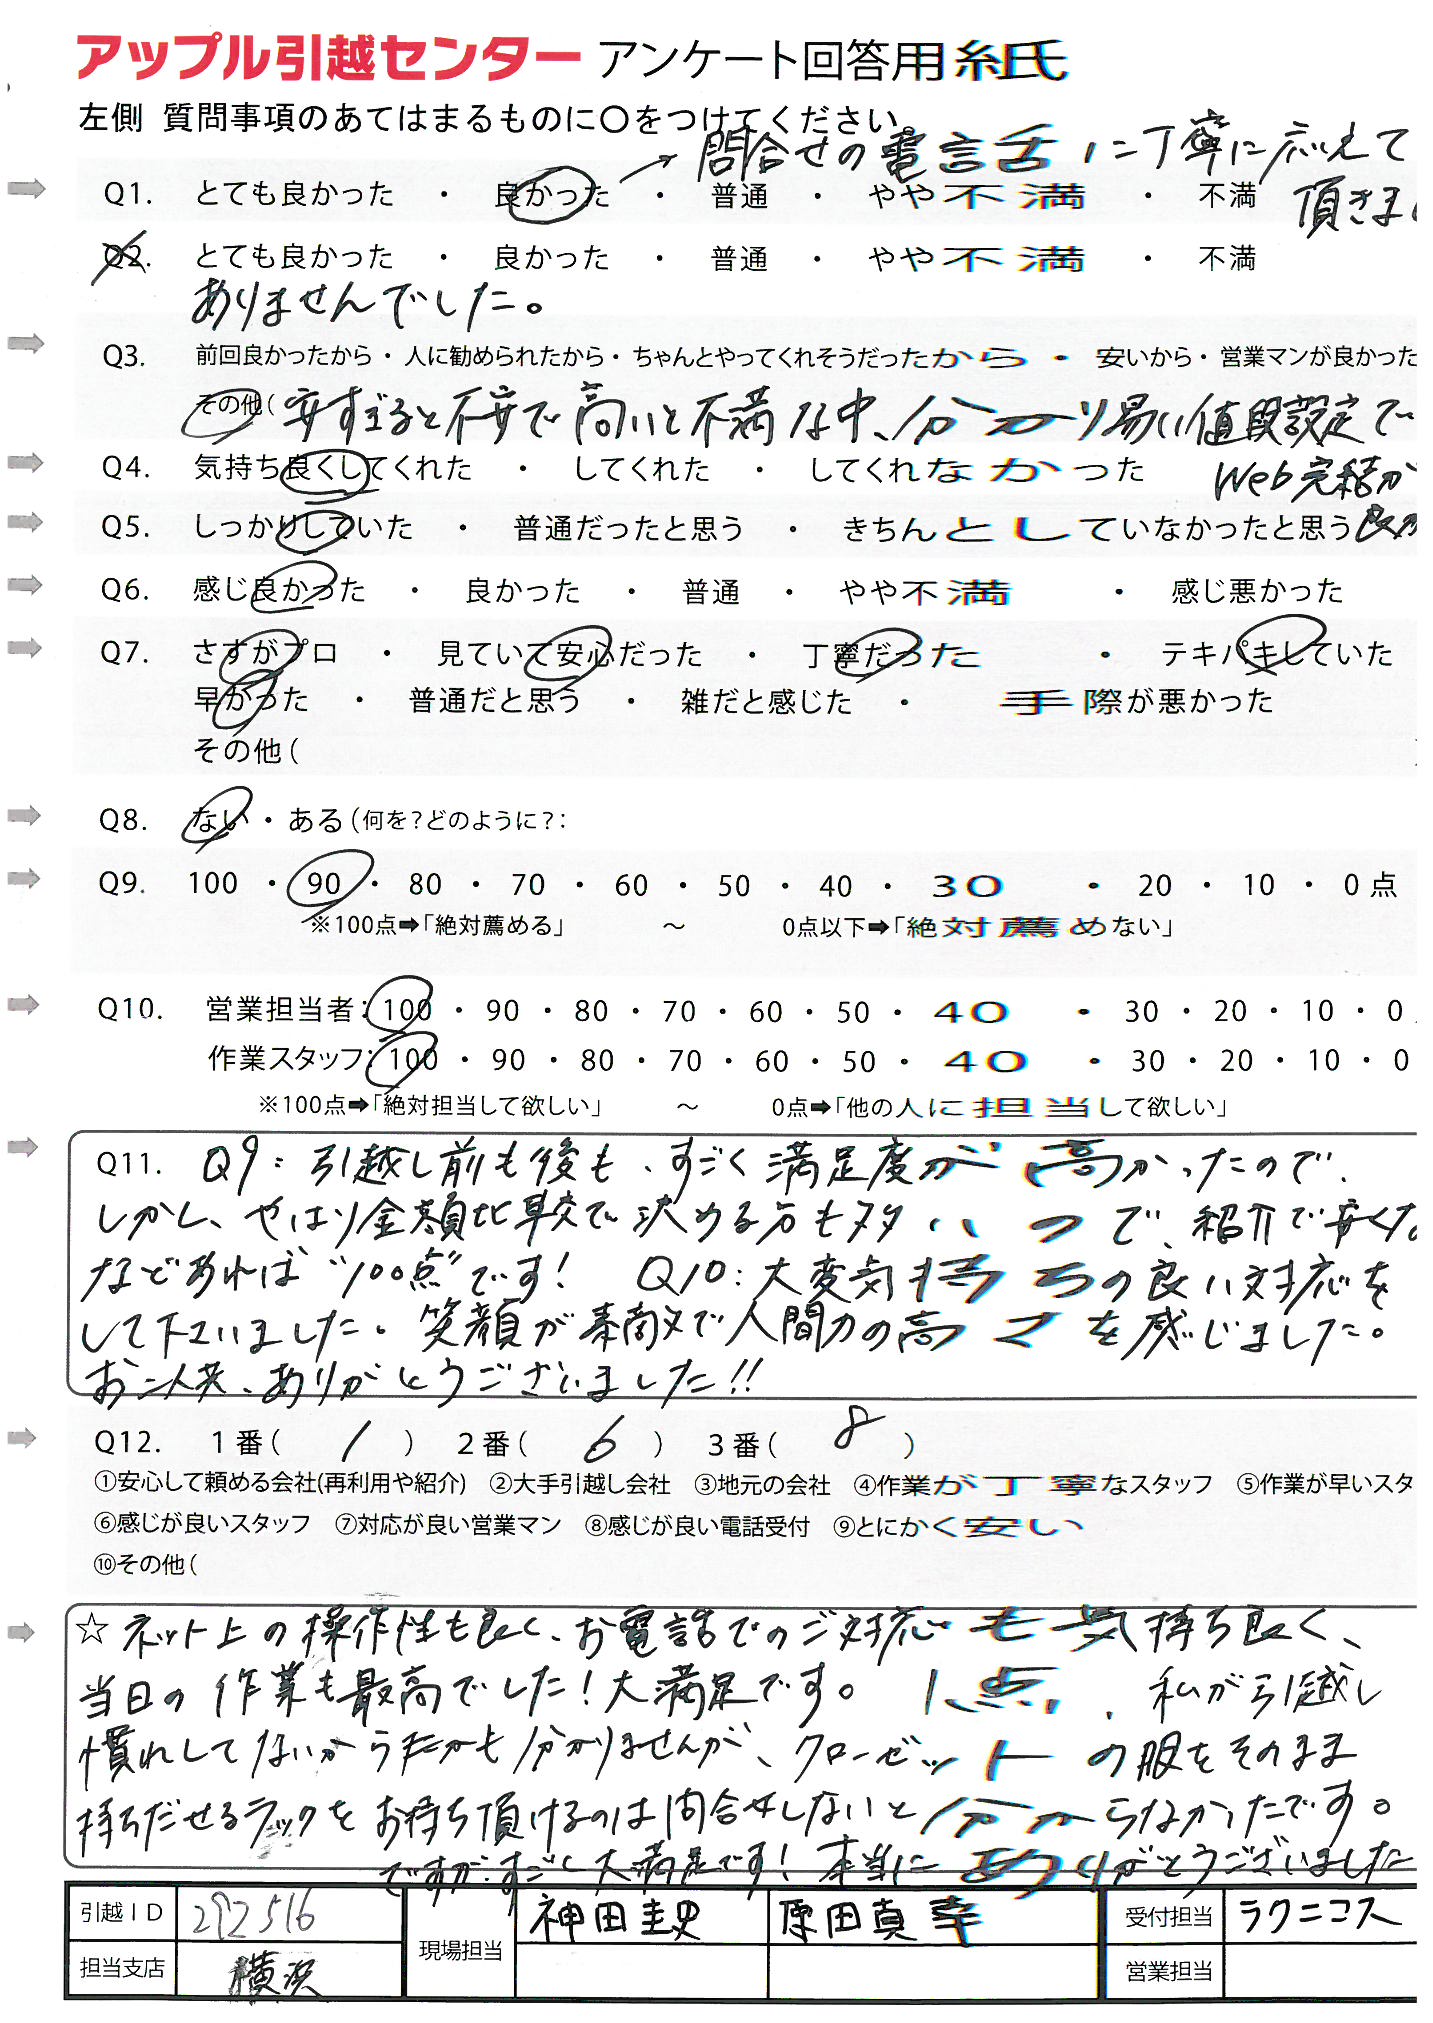 アップル引越センター アンケート回答用紙
左側 質問事項のあてはまるものに○をつけてください。
→ 問合せの電話に丁寧に応えて
頂きまし
Q1. とても良かった ・ 良かった ・ 普通 ・ やや不満 ・ 不満
Q2. とても良かった ・ 良かった ・ 普通 ・ やや不満 ・ 不満
ありませんでした。
Q3. 前回良かったから・人に勧められたから・ちゃんとやってくれそうだったから・安いから・営業マンが良かった
その他( 安すぎると不安で高いと不満な中、分かり易い値段設定で
Web完結が
良か
Q4. 気持ち良くしてくれた ・ してくれた ・ してくれなかった
Q5. しっかりしていた ・ 普通だったと思う ・ きちんとしていなかったと思う
Q6. 感じ良かった ・ 良かった ・ 普通 ・ やや不満 ・ 感じ悪かった
Q7. さすがプロ ・ 見ていて安心だった ・ 丁寧だった ・ テキパキしていた
早かった ・ 普通だと思う ・ 雑だと感じた ・ 手際が悪かった
その他(
Q8. ない・ある(何を?どのように?:
Q9. 100 ・ 90 ・ 80 ・ 70 ・ 60 ・ 50 ・ 40 ・ 30 ・ 20 ・ 10 ・ 0点
※100点➡「絶対薦める」 ～ 0点以下➡「絶対薦めない」
Q10. 営業担当者:100 ・ 90 ・ 80 ・ 70 ・ 60 ・ 50 ・ 40 ・ 30 ・ 20 ・ 10 ・ 0
作業スタッフ:100 ・ 90 ・ 80 ・ 70 ・ 60 ・ 50 ・ 40 ・ 30 ・ 20 ・ 10 ・ 0
※100点➡「絶対担当して欲しい」 ～ 0点➡「他の人に担当して欲しい」
Q11. Q9:引越し前も後も、すごく満足度が高かったので、
しかし、やはり金額比較で決める方も多いので、紹介で安くな
などあれば“100点”です! Q10:大変気持ちの良い対応を
して下さいました。笑顔が素敵で人間力の高さを感じました。
お二人共、ありがとうございました!!
Q12. 1番( 1 ) 2番( 6 ) 3番( 8 )
①安心して頼める会社(再利用や紹介) ②大手引越し会社 ③地元の会社 ④作業が丁寧なスタッフ ⑤作業が早いスタ
⑥感じが良いスタッフ ⑦対応が良い営業マン ⑧感じが良い電話受付 ⑨とにかく安い
⑩その他(
☆ ネット上の操作性も良く、お電話でのご対応も気持ち良く、
当日の作業も最高でした!大満足です。1点、私が引越し
慣れしてないからだかも分かりませんが、クローゼットの服をそのまま
持ちだせるラックをお持ち頂けるのは問合せしないと分からなかったです。
ですが、すごく大満足です!本当にありがとうございました
引越ID 292516 現場担当 神田圭史 原田真幸 受付担当 ラクニコス
担当支店 横浜 営業担当